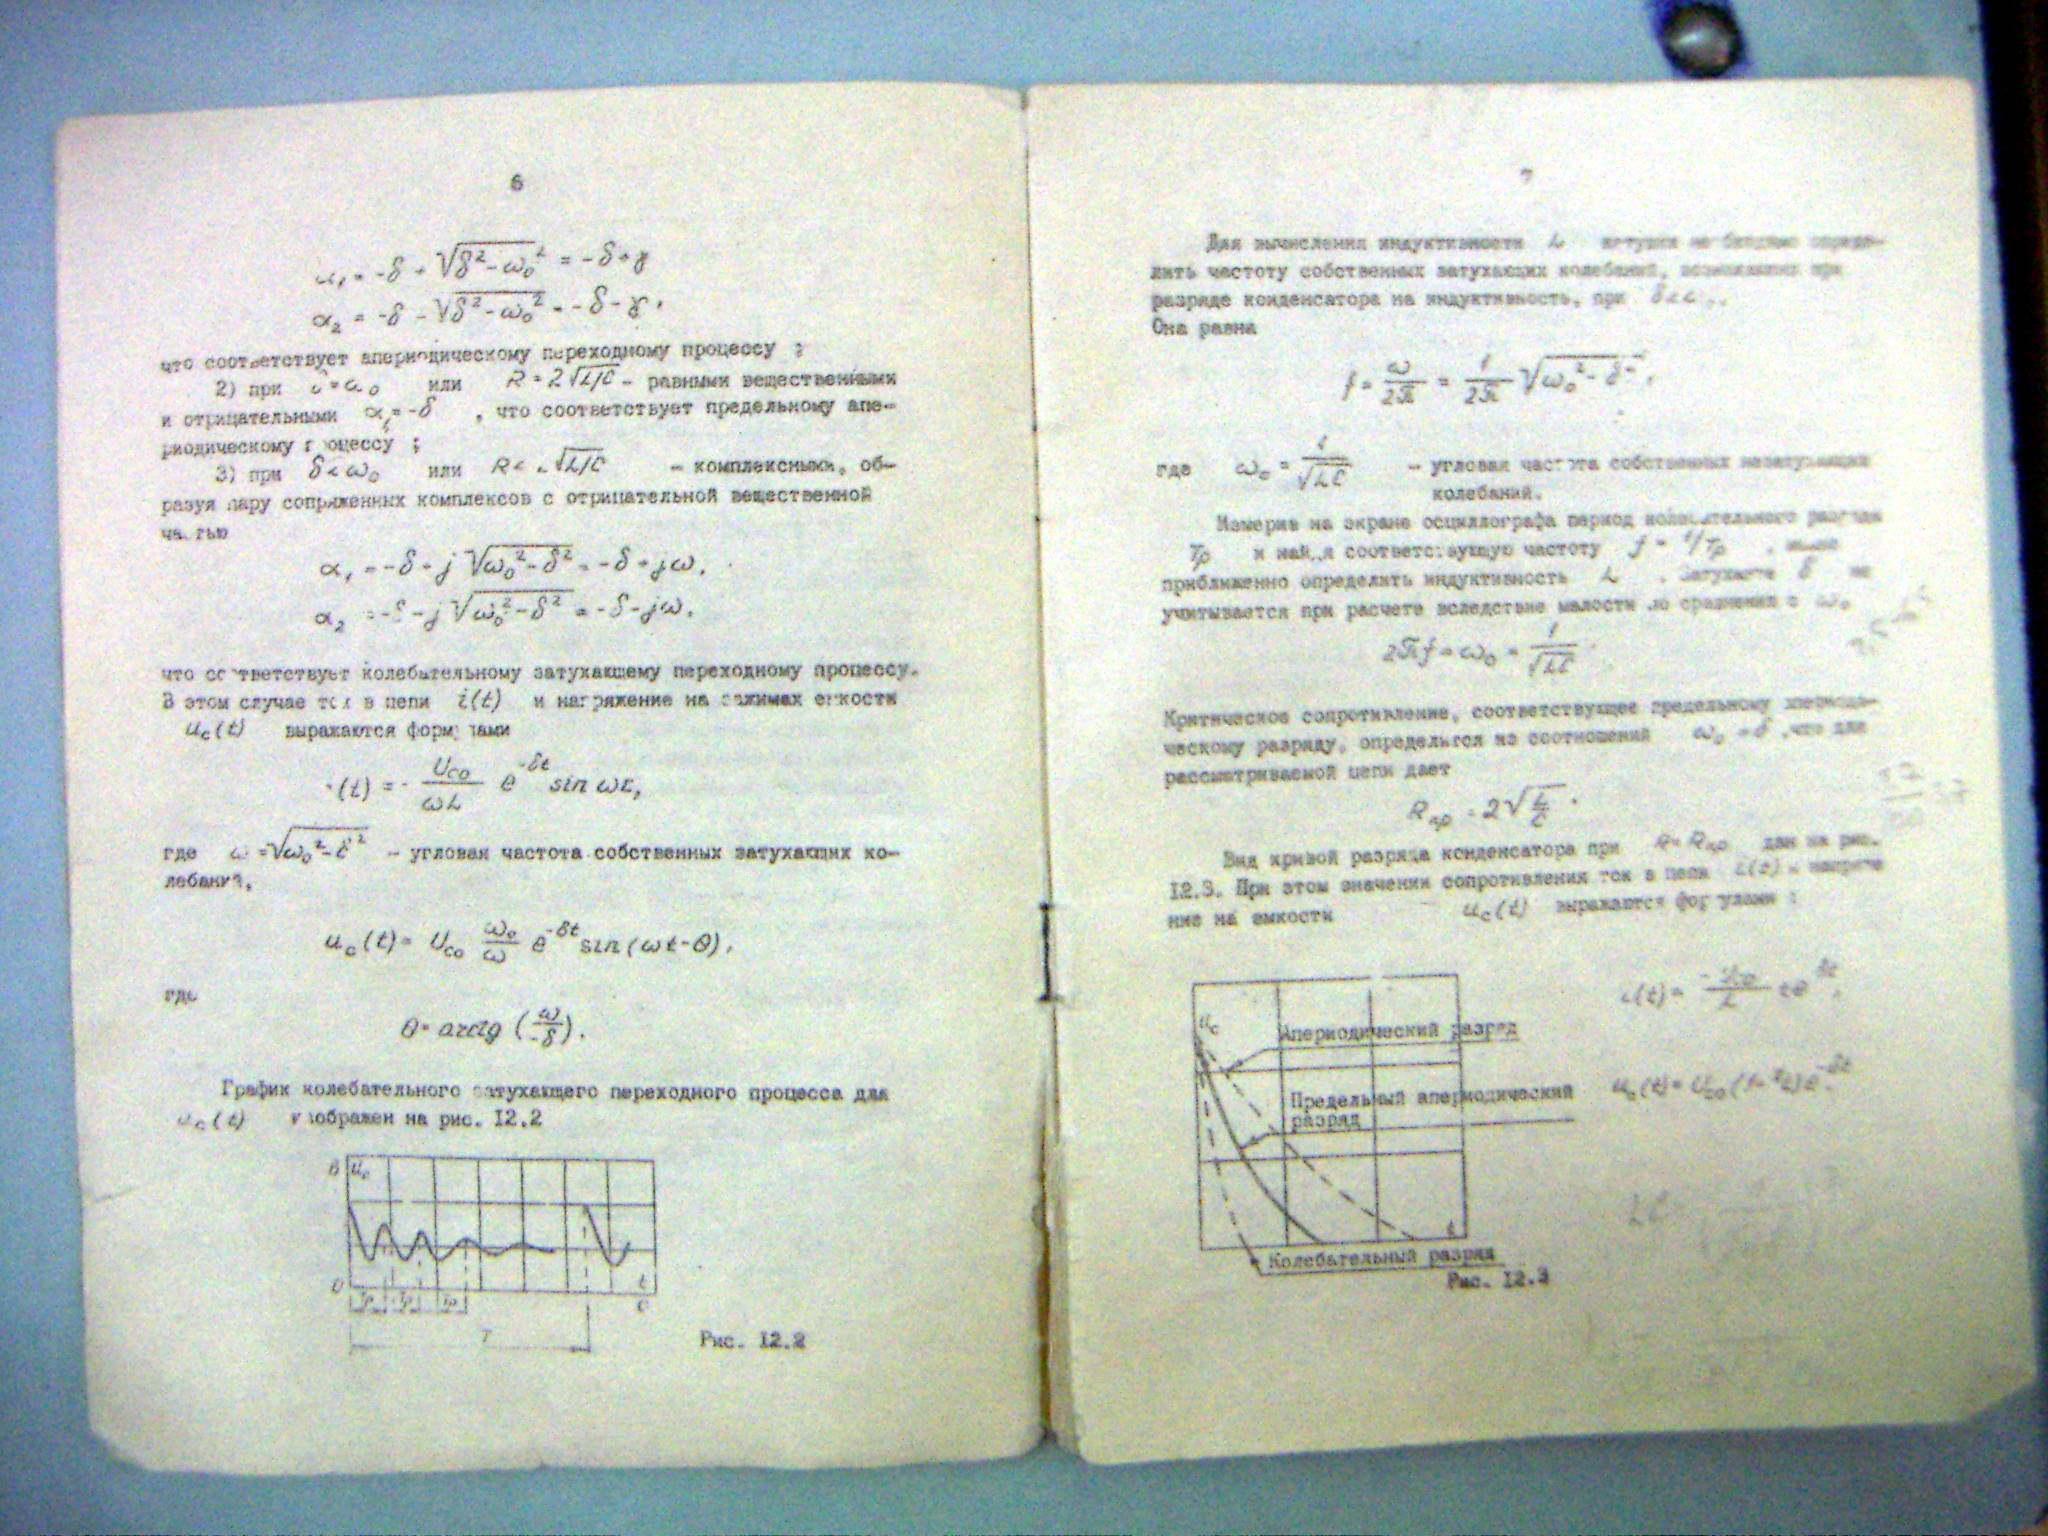 6
α₁ = -δ + √δ² - ω₀² = -δ + γ
α₂ = -δ - √δ² - ω₀² = -δ - γ,
что соответствует апериодическому переходному процессу ;
2) при ω₀ или R = 2√L/C – равными вещественными
и отрицательными = -δ , что соответствует предельному апе-
риодическому процессу ;
3) при δ < ω₀ или R < √L/C – комплексными, об-
разуя пару сопряженных комплексов с отрицательной вещественной
частью
α₁ = -δ + j √ω₀² - δ² = -δ + jω,
α₂ = -δ - j √ω₀² - δ² = -δ - jω,
что соответствует колебательному затухающему переходному процессу.
В этом случае ток в цепи i(t) и напряжение на зажимах емкости
u_c(t) выражаются формулами
(t) = - U_co/ωL e^-δt sin ωt,
где ω = √ω₀² - δ² – угловая частота собственных затухающих ко-
лебаний,
u_c(t) = U_co ω₀/ω e^-δt sin(ωt - θ),
где
θ = arctg (ω/-δ).
График колебательного затухающего переходного процесса для
u_c(t) изображен на рис. 12.2
В u_c
0 t
Tр Tр Tр с
T
Рис. 12.2
7
Для вычисления индуктивности L катушки необходимо опреде-
лить частоту собственных затухающих колебаний, возникающих при
разряде конденсатора на индуктивность, при
Она равна
f = ω/2π = 1/2π √ω₀² - δ² ,
где ω₀ = 1/√LC – угловая частота собственных незатухающих
колебаний.
Измерив на экране осциллографа период колебательного разряда
Tр и найдя соответствующую частоту f = 1/Tр , можно
приближенно определить индуктивность L . Затухание δ не
учитывается при расчете вследствие малости по сравнению с ω₀
2πf = ω₀ = 1/√LC
Критическое сопротивление, соответствующее предельному апериоди-
ческому разряду, определяется из соотношений ω₀ = δ , что для
рассматриваемой цепи дает
R_кр = 2√L/C .
Вид кривой разряда конденсатора при R = R_кр дан на рис.
12.3. При этом значении сопротивления ток в цепи i(t) и напряже
ние на емкости u_c(t) выражаются формулами :
i(t) = -U_co/L te^-δt,
u_c
Апериодический разряд
Предельный апериодический
разряд
u_c(t) = U_co (1- t) e^-δt.
t
Колебательный разряд
Рис. 12.3